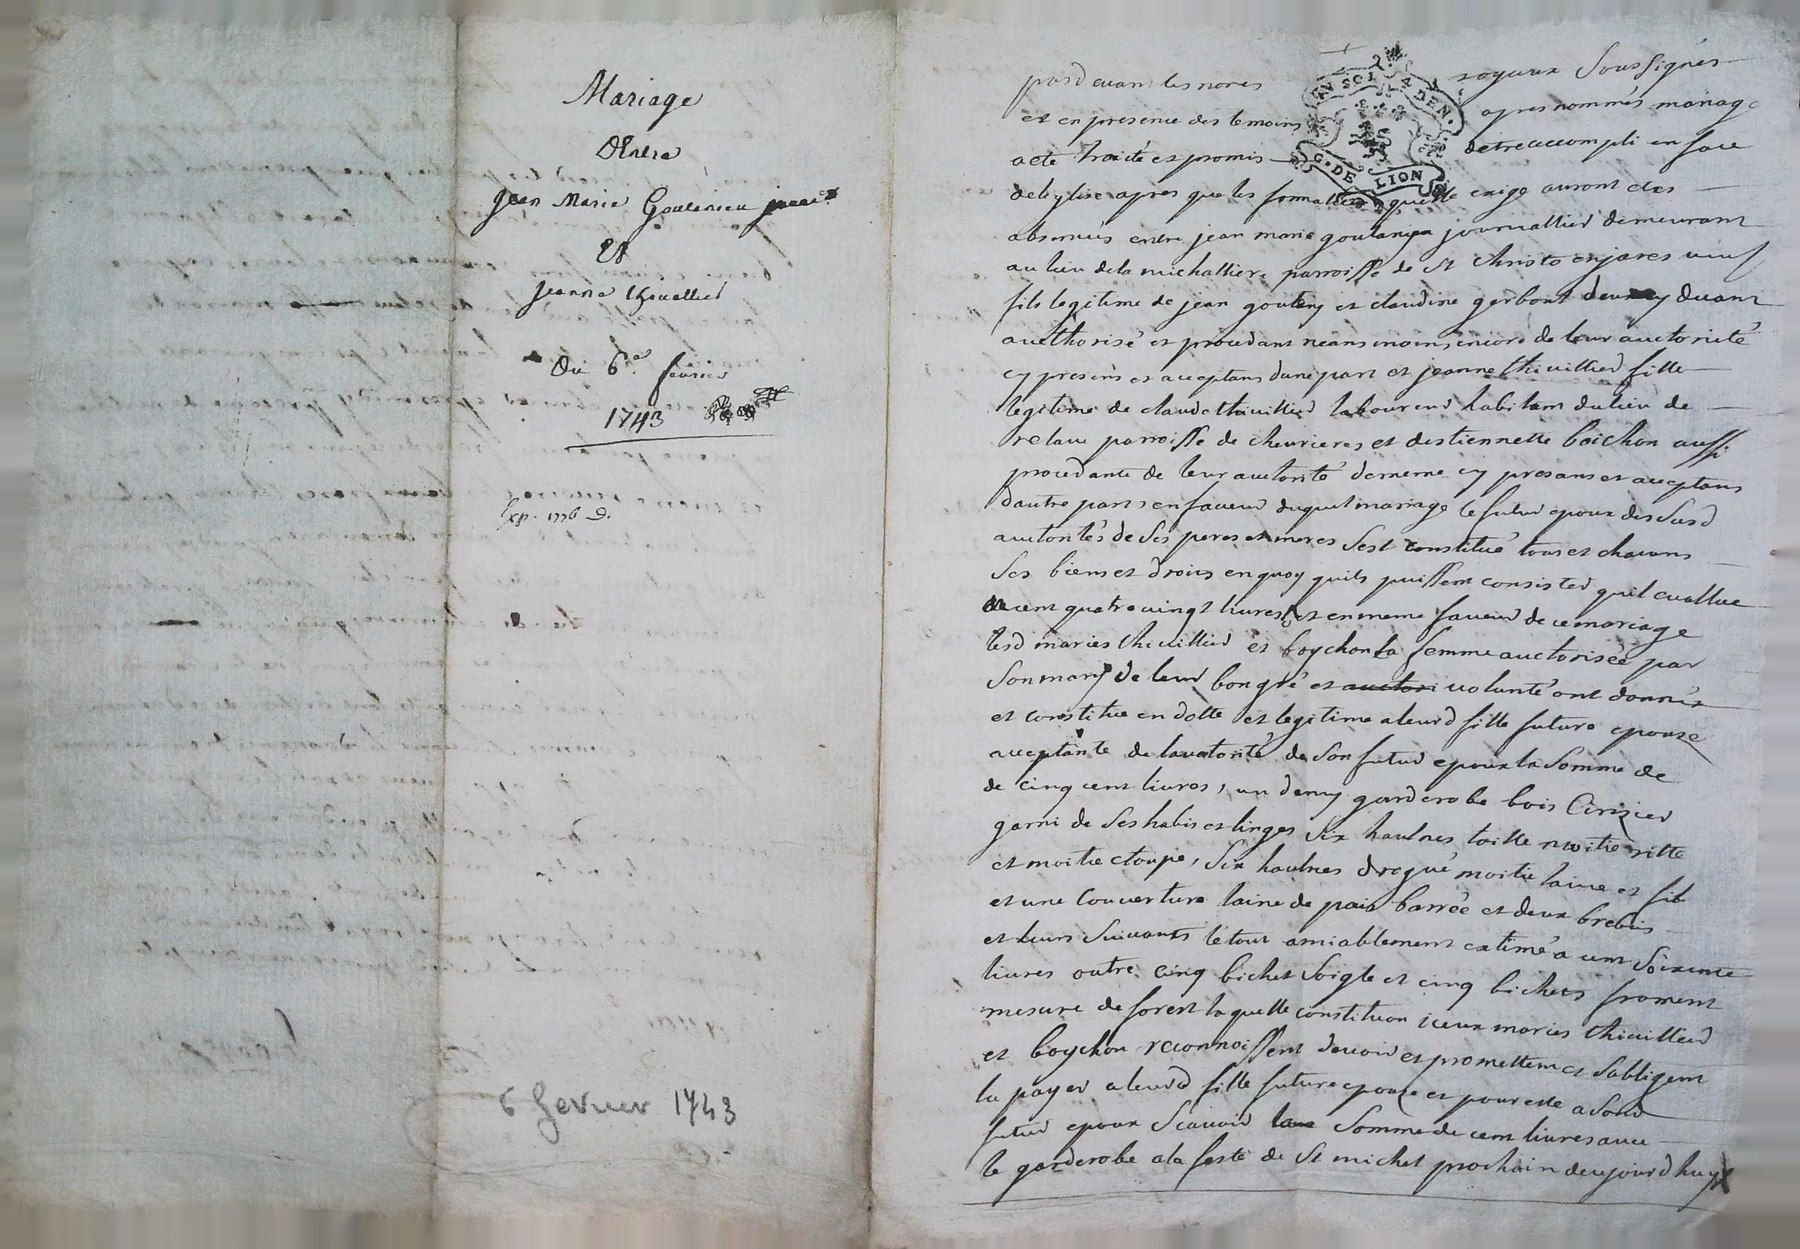 Mariage
Entre
Jean Marie Goutanieu
Et
Jeanne thivallier
Du 6e. fevrier
1743
Exp. 1776 D.
6 fevrier 1743
pard evant les nores royaux Soussignés
et en presence des temoins apres nommés mariage
a eté traité et promis detre accompli en face
de leglise apres que les formalites quelle exige auront etes
observeés entre jean marie goutanÿ journallier demeurant
au lieu de la michalliere parroisse de St Christo enjarés veuf
fils legitime de jean goutany et claudine gerbout
aucthorisé et procedant neansmoins encore de leur auctorité
cy presens et acceptans dune part et jeanne thivillier fille
legitime de claude thivillier laboureur habitant du lieu de
relave parroisse de chevrieres et destiennette boichon aussi
procedante de leur auctorité de meme cy presans et acceptans
dautre part, en faveur duquel mariage le futur epoux des Susd
auctorités de Ses peres et meres Sest constitué tous et chacuns
Ses biens et droits en quoy quils puissent consister quil evallue
a cent quatre vingt livres, et en meme faveur de ce mariage
lesd mariés thivillier et boychon la femme auctorisée par
Son mary de leur bon gré et auctori volunté ont donnés
et constitué en dotte et legitime a leurd fille future epouze
acceptante de lauctorité de Son futur epoux la Somme de
de cinq cent livres, un demy garderobe bois Cirizier
garni de Ses habis et linges Six haulnes toille moitié ritte
et moitie etoupe, Six haulnes drogué moitié laine et fil
et une Couverture laine de pais barrée et deux brebis
et leurs Suivants le tout amiablement estimé a cent Soixente
livres outre cinq bichet Soigle et cinq bichets froment
mesure de forest laquelle constitution iceux mariés thivillier
et boychon reconnoissent devoir et promettent et Sobligent
la payer a leurd fille future epouze et pour elle a Sond
futur epoux Scavoir la Somme de cent livres avec
le garderobe a la feste de St michel prochain de ce jourdhuy